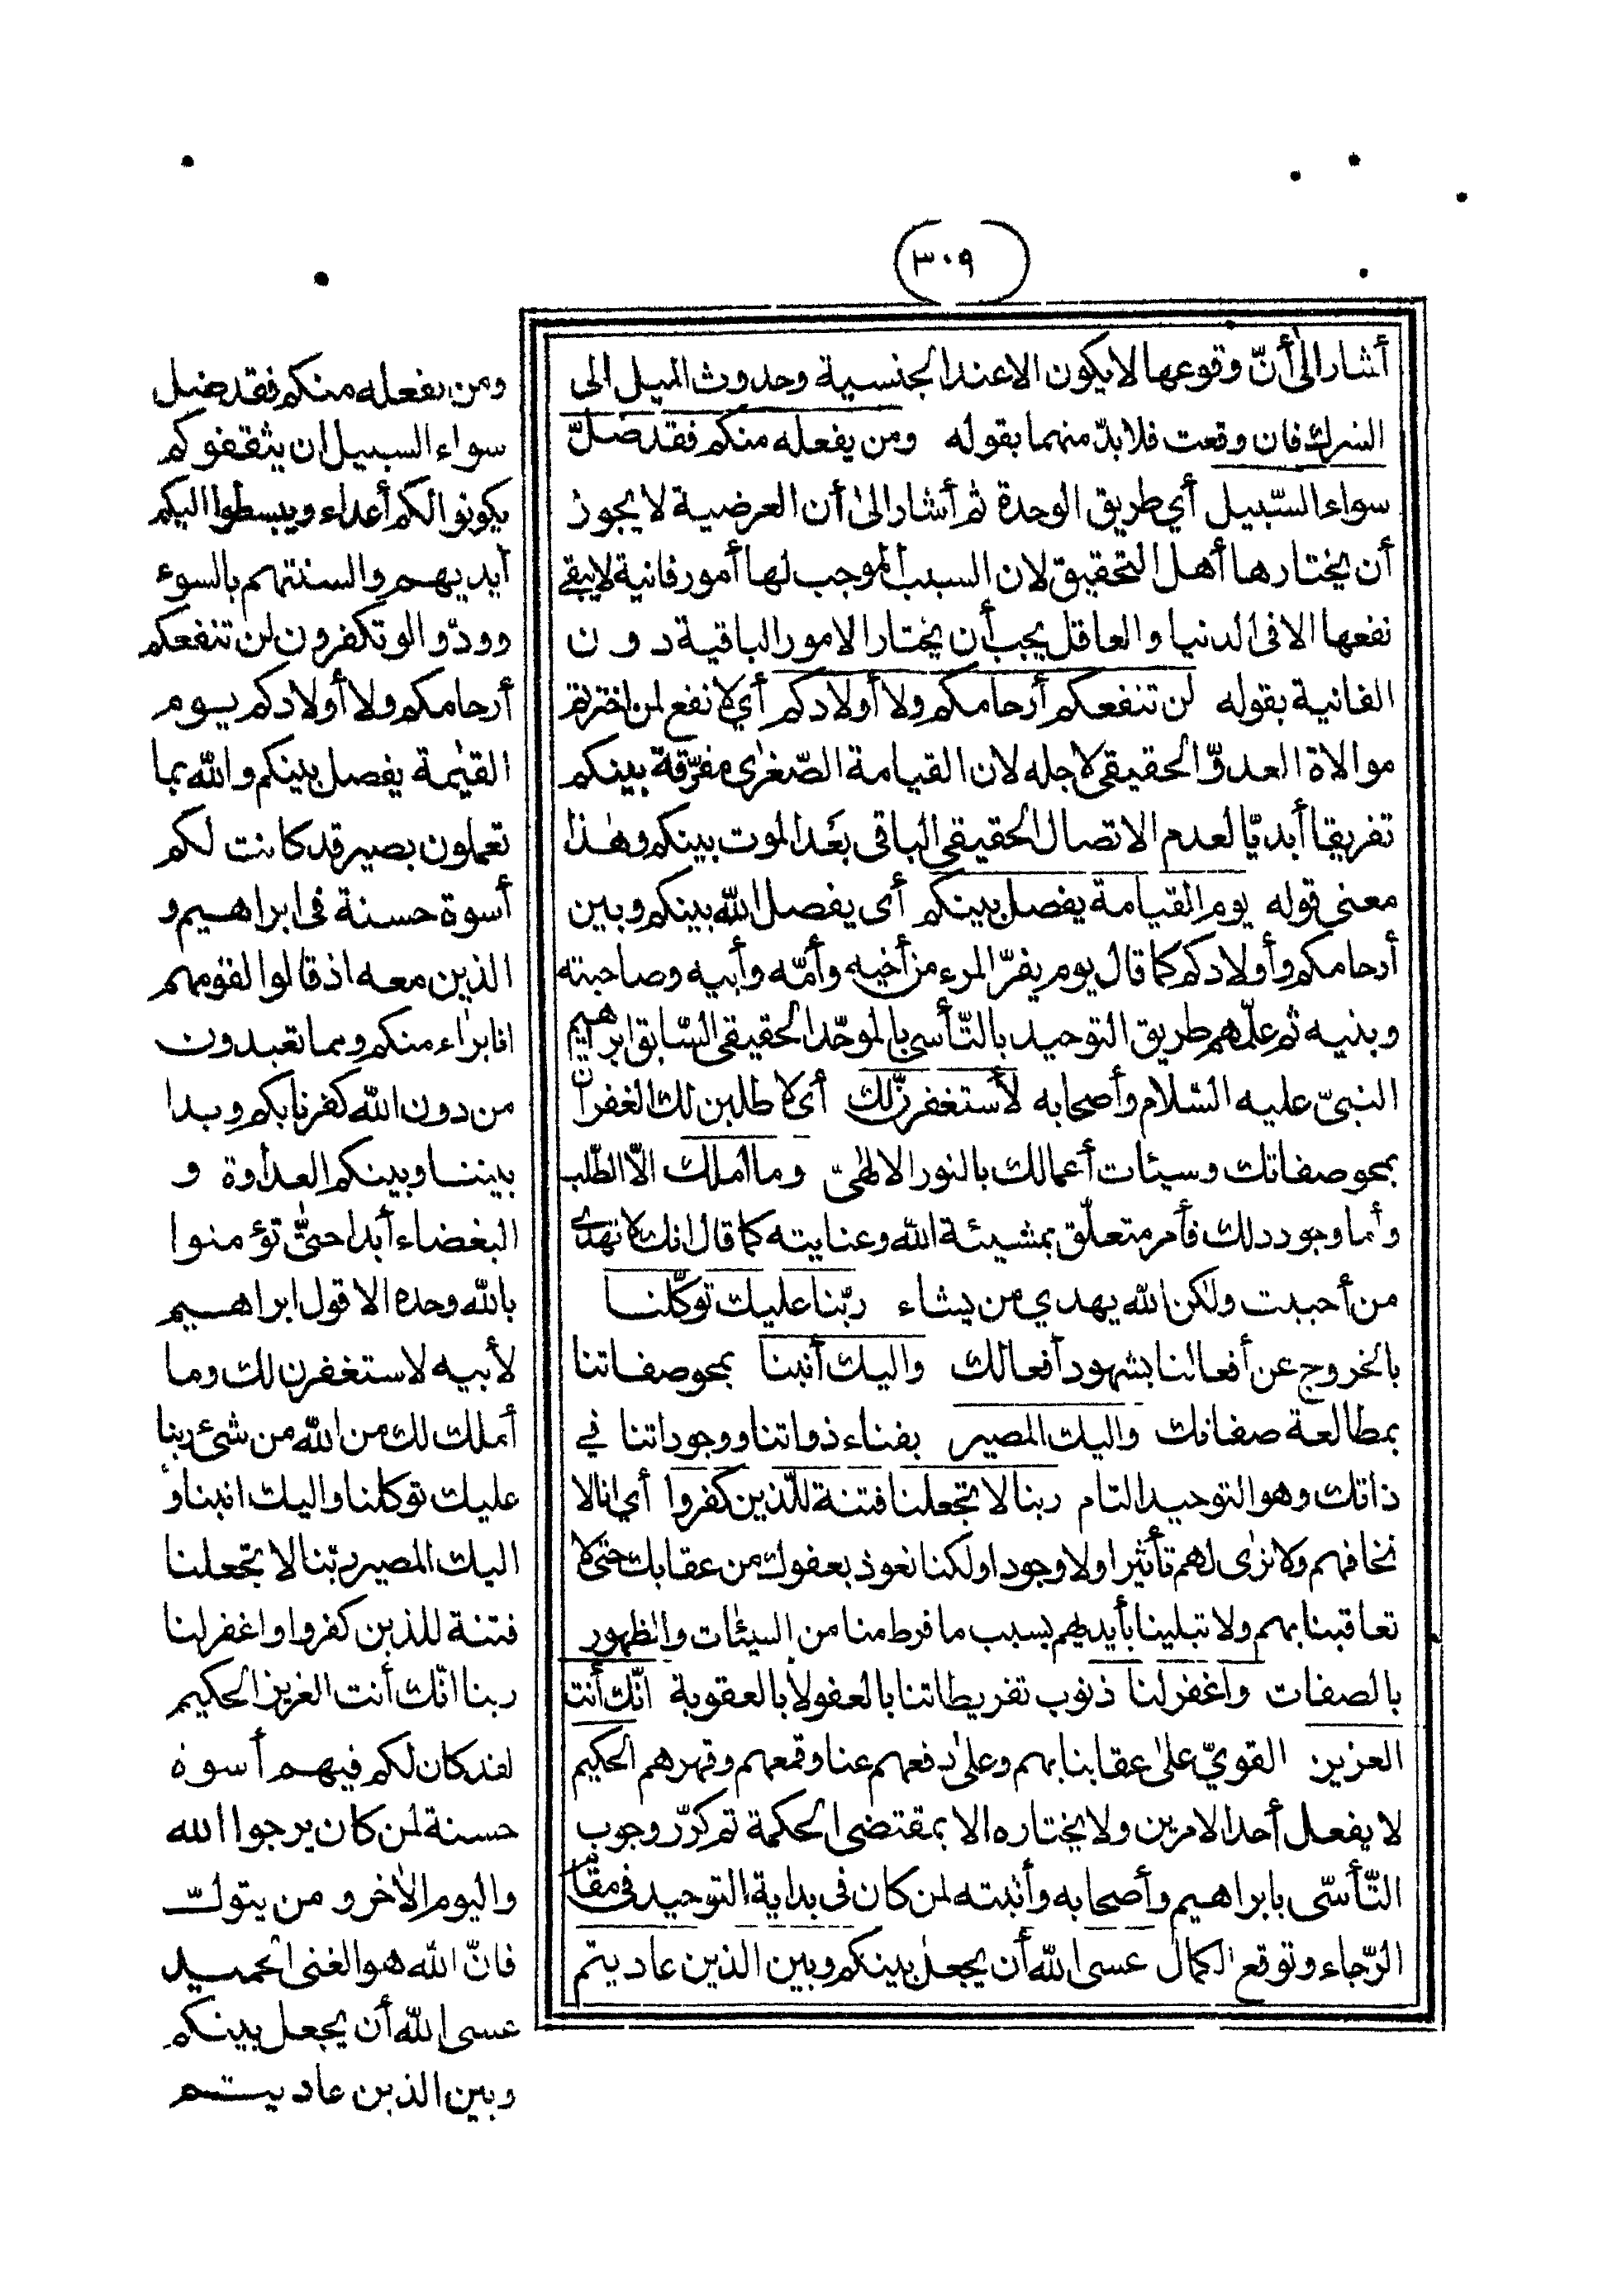 (٣٠٩)
أشار الى أنّ وقوعها لا يكون الا عند الجنسية وحدوث الميل الى
الشرك فان وقعت فلا بدّ منهما بقوله ومن يفعله منكم فقد ضلّ
سواء السّبيل أي طريق الوحدة ثم أشار الى أن العرضية لا يجوز
أن يختارها أهل التحقيق لان السبب الموجب لها أمور فانية لا يبقى
نفعها الا فى الدنيا والعاقل يجب أن يختار الامور الباقية دون
الفانية بقوله لن تنفعكم أرحامكم ولا أولادكم أي لا نفع لمن اخترتم
موالاة العدوّ الحقيقى لاجله لان القيامة الصّغرى مفرّقة بينكم
تفريقا أبديّا لعدم الاتصال الحقيقى الباقى بعد الموت بينكم وهذا
معنى قوله يوم القيامة يفصل بينكم أى يفصل الله بينكم وبين
أرحامكم وأولادكم كما قال يوم يفرّ المرء من أخيه وأمّه وأبيه وصاحبته
وبنيه ثم علّمهم طريق التوحيد بالتّأسي بالموحّد الحقيقى السّابق ابرهيم
النبىّ عليه السّلام وأصحابه لأستغفرنّ لك أى لا طلبن لك الغفران
بمحو صفاتك وسيئات أعمالك بالنور الالهىّ وما أملك الاّ الطّلب
وأما وجود ذلك فأمر متعلّق بمشيئة الله وعنايته كما قال انك لا تهدى
من أحببت ولكن الله يهدي من يشاء ربّنا عليك توكّلنا
بالخروج عن أفعالنا بشهود أفعالك واليك أنبنا بمحو صفاتنا
بمطالعة صفاتك واليك المصير بفناء ذواتنا ووجوداتنا في
ذاتك وهو التوحيد التام ربنا لا تجعلنا فتنة للّذين كفروا أي انا لا
نخافهم ولا نرى لهم تأثيرا ولا وجودا ولكنا نعوذ بعفوك من عقابك حتى لا
تعاقبنا بهم ولا تبلينا بأيديهم بسبب ما فرط منا من السيئات والظهور
بالصفات واغفر لنا ذنوب تفريطاتنا بالعفو لا بالعقوبة انّك أنت
العزيز القويّ على عقابنا بهم وعلى دفعهم عنا وقمعهم وقهرهم الحكيم
لا يفعل أحد الامرين ولا يختاره الا بمقتضى الحكمة ثم كرّر وجوب
التّأسّى بابراهيم وأصحابه وأثبته لمن كان فى بداية التوحيد فى مقام
الرّجاء وتوقع الكمال عسى الله أن يجعل بينكم وبين الذين عاديتم
ومن يفعله منكم فقد ضل
سواء السبيل ان يثقفوكم
يكونوا لكم أعداء ويبسطوا اليكم
أيديهم والسنتهم بالسوء
وودّوا لو تكفرون لن تنفعكم
أرحامكم ولا أولادكم يوم
القيٰمة يفصل بينكم والله بما
تعملون بصير قد كانت لكم
أسوة حسنة فى ابراهيم و
الذين معه اذ قالوا لقومهم
انا براء منكم ومما تعبدون
من دون الله كفرنا بكم وبدا
بيننا وبينكم العداوة و
البغضاء أبدا حتىّ تؤمنوا
بالله وحده الا قول ابراهيم
لأبيه لاستغفرن لك وما
أملك لك من الله من شئ ربنا
عليك توكلنا واليك انبنا و
اليك المصير ربّنا لا تجعلنا
فتنة للذين كفروا واغفر لنا
ربنا انّك أنت العزيز الحكيم
لقد كان لكم فيهم أسوة
حسنة لمن كان يرجوا الله
واليوم الأخر ومن يتولّ
فانّ الله هو الغنى الحميد
عسى الله أن يجعل بينكم
وبين الذين عاديتم